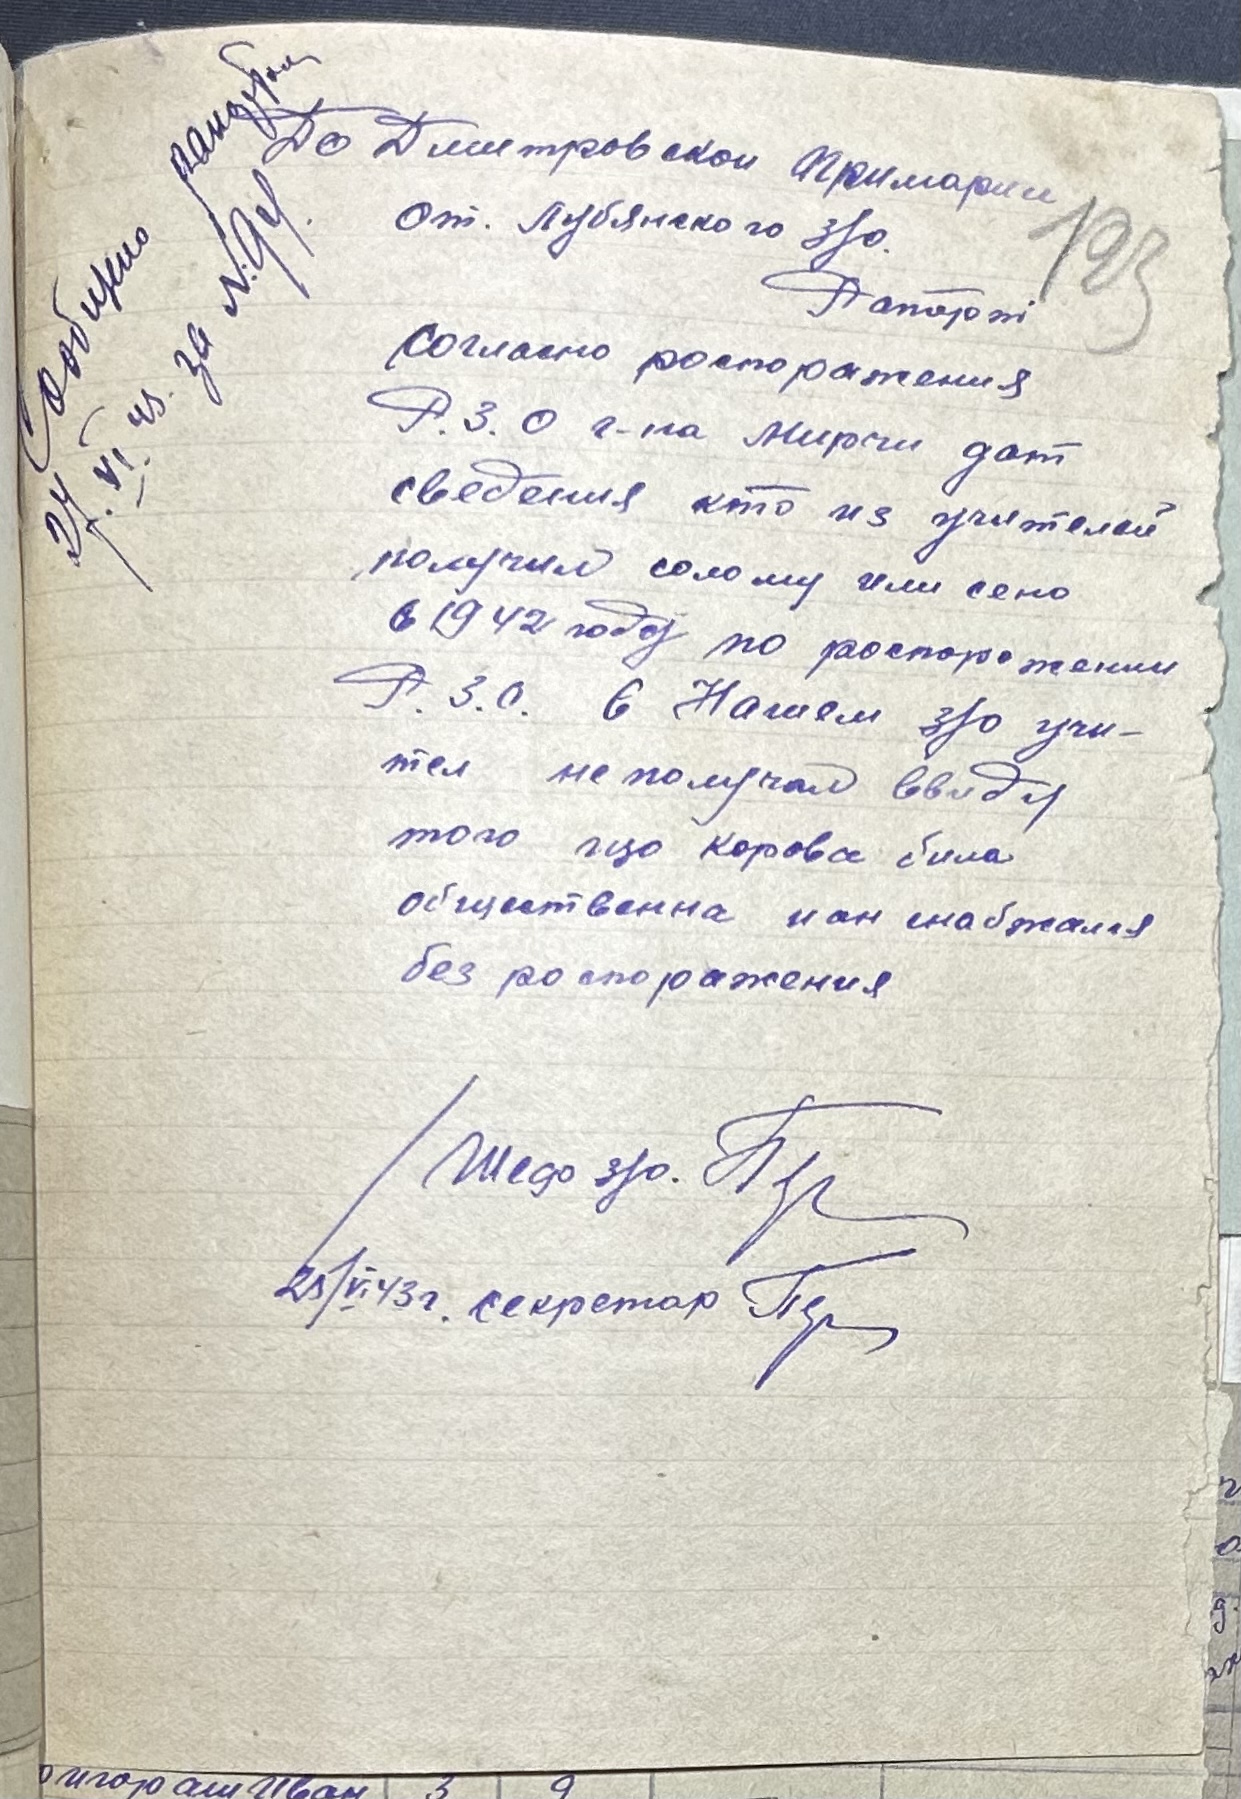 Сообщено
24.VI 43. за №94.
До Дмитровскои Примарии
от. Лубянского з/о.
193
Рапорт
согласно роспоражения
Р.З.О г-на Мирчи дат
сведения кто из учителей
получил солому или сено
в 1942 году по роспоражении
Р.З.О. в Нашем з/о учи-
тел не получал ввиду
того що корова била
общественна и он снабжался
без роспоражения
Шеф з/о.
23/VI.43 г. секретар
ригораш Иван 3 9